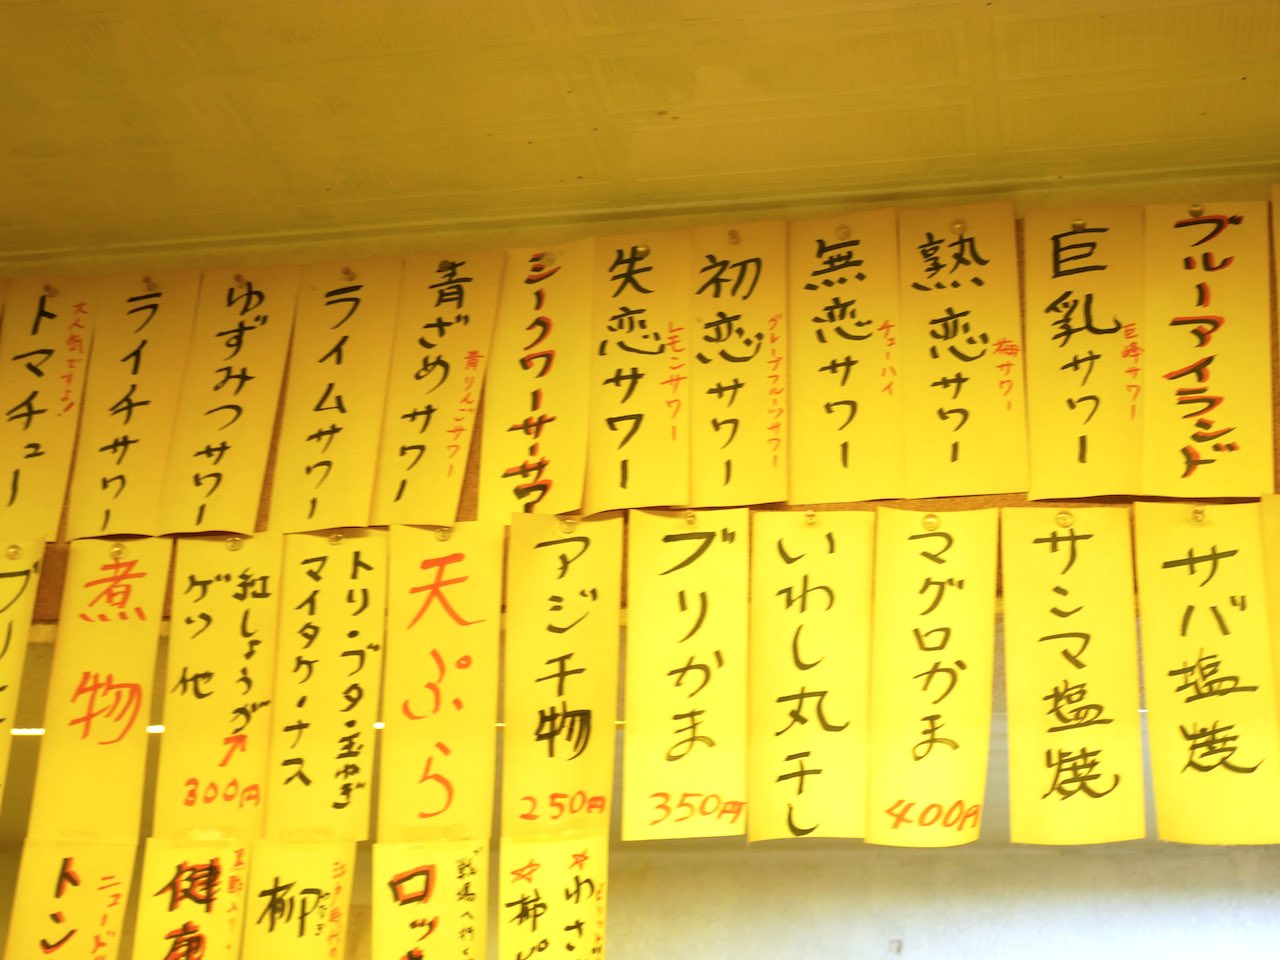 ブルーアイランド
巨乳サワー
巨峰サワー
熟恋サワー
梅サワー
無恋サワー
チューハイ
初恋サワー
グレープフルーツサワー
失恋サワー
レモンサワー
シークワーサーサワー
青ざめサワー
青りんごサワー
ライムサワー
ゆずみつサワー
ライチサワー
トマチュー
大人気ですヨ!
サバ塩焼
サンマ塩焼
マグロかま
400円
いわし丸干し
ブリかま
350円
アジ干物
250円
天ぷら
トリ・ブタ・玉ねぎ
マイタケ・ナス
紅しょうが
ゲソ 他
300円
煮物
☆わさ
☆柿ピ
ロッ
柳
健康
トン